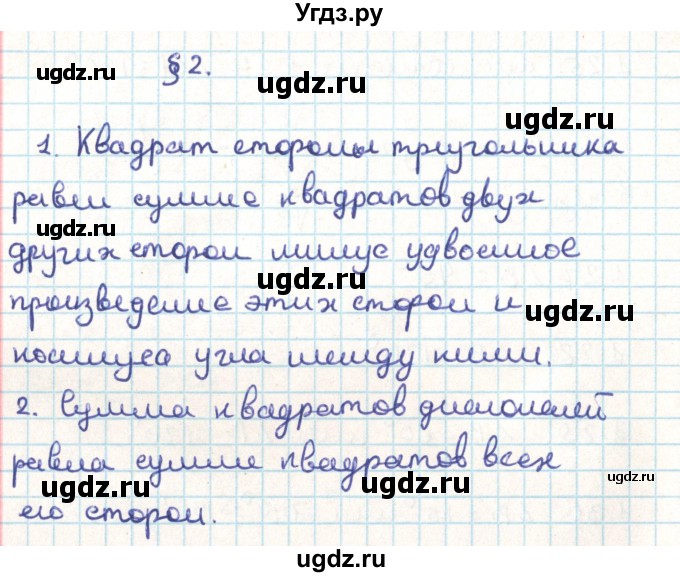 Угдз.ру
ugdz.ru § 2. ugdz.ru
ugdz.ru
1. Квадрат стороны треугольника
равен сумме квадратов двух
ugdz.ru ugdz.ru
других сторон минус удвоенное
ugdz.ru
произведение этих сторон и
ugdz.ru ugdz.ru
косинуса угла между ними.
2. Сумма квадратов диагоналей
ugdz.ru
равна сумме квадратов всех
ugdz.ru ugdz.ru ugdz.ru
его сторон.
ugdz.ru